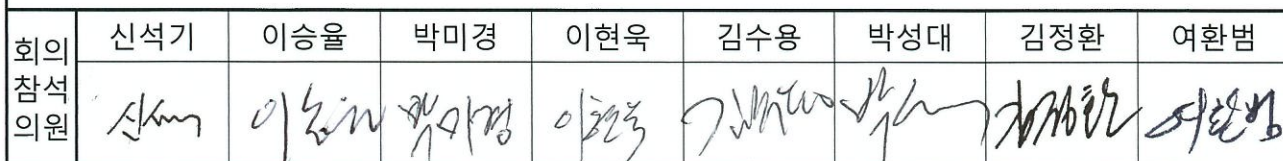 회의 참석 의원
신석기 이승율 박미경 이현욱 김수용 박성대 김정환 여환범
이승율 박미경 이현욱 김정환 여환범